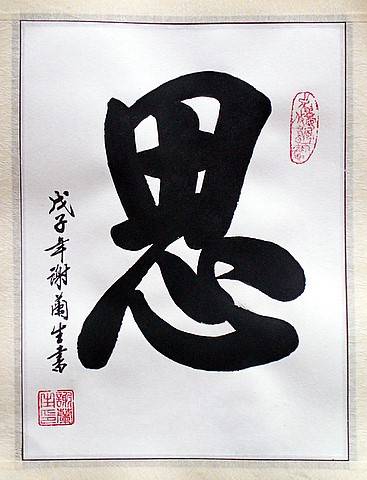 思
戊子年谢蘭生書